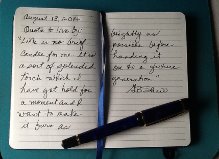 August 13, 20
Quote to live by:
"Life is no brief
candle for me. It is
a sort of splendid
torch which I
have got hold for
a moment and I
want to make
it burn as
brightly as
possible before
handing it
on to a future
generation."